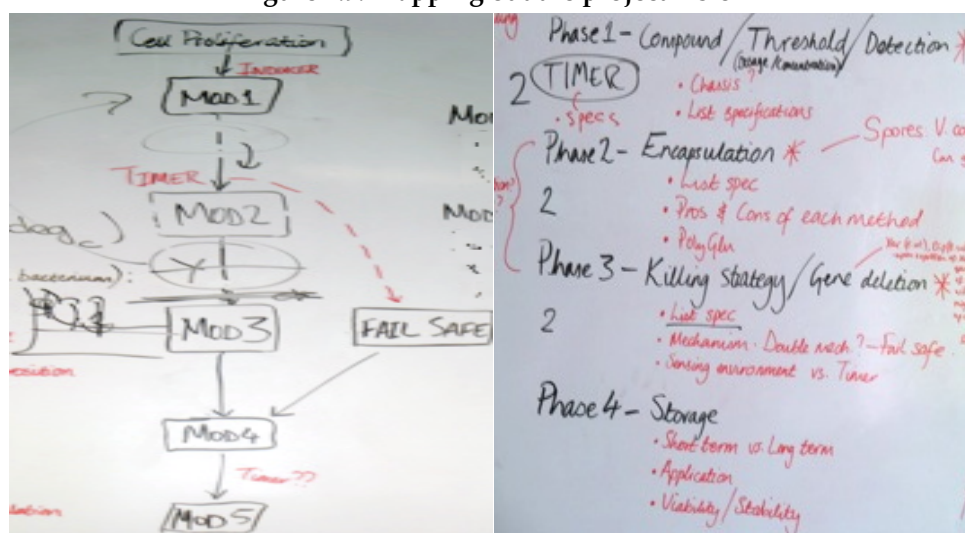 Cell Proliferation
INDUCER
MOD1
TIMER
MOD2
bacterium):
MOD3
FAIL SAFE
MOD4
Timer??
MOD5
Phase 1 - Compound / Threshold / Detection *
2 TIMER
• Chassis?
• specs
• List specifications
Phase 2 - Encapsulation *
Spores
Can
2
• List spec
• Pros & Cons of each method
• PolyGlu
Phase 3 - Killing strategy / Gene deletion *
2
• List spec
• Mechanism. Double mech.? - Fail safe.
• Sensing environment vs. Timer
Phase 4 - Storage
• Short term vs. Long term
• Application
• Viability / Stability